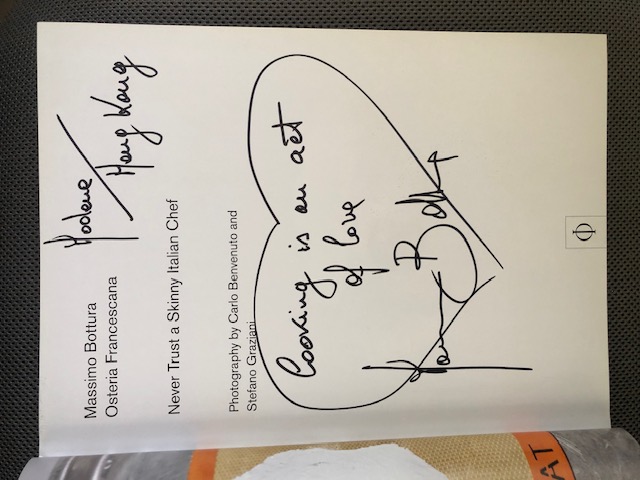 Massimo Bottura
Osteria Francescana
Modena/
Hong Kong
Never Trust a Skinny Italian Chef
Photography by Carlo Benvenuto and
Stefano Graziani
Cooking is an act
of love
Φ
AT